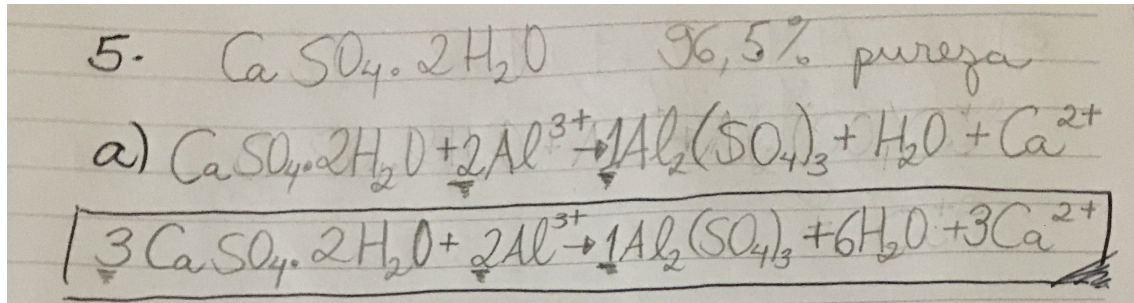 5. CaSO₄.2H₂O 96,5% pureza
a) CaSO₄.2H₂O + 2Al³⁺ → 1Al₂(SO₄)₃ + H₂O + Ca²⁺
3CaSO₄.2H₂O + 2Al³⁺ → 1Al₂(SO₄)₃ + 6H₂O + 3Ca²⁺